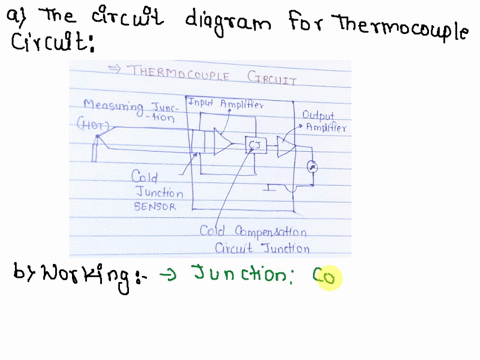 a) The circuit diagram for Thermocouple
Circuit:
⇒ THERMOCOUPLE CIRCUIT
Measuring Junc-
-tion
(HOT)
Input Amplifier
Output
Amplifier
CJ
Cold
Junction
SENSOR
Cold Compensation
Circuit Junction
b) Working:- → Junction: Co